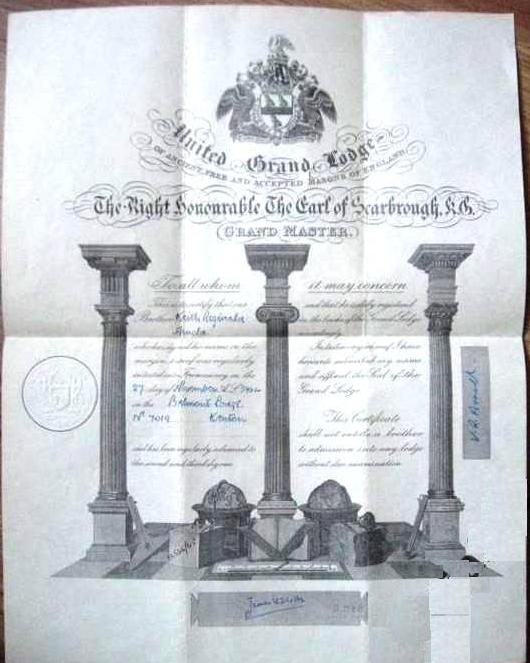 United Grand Lodge
OF ANCIENT FREE AND ACCEPTED MASONS OF ENGLAND
The Right Honourable The Earl of Scarbrough, K.G.
GRAND MASTER.
To all whom it may concern
This is to certify that our
Brother Keith Reginald
who has signed his name in the
margin hereof was regularly
initiated into Freemasonry on the
27 day of November A.D.
in the Belmont Lodge
No 7019 Kenton
and has been regularly advanced to
the second and third degrees
and that he is duly registered
in the books of the Grand Lodge
accordingly.
In testimony whereof I have
hereunto subscribed my name
and affixed the Seal of the
Grand Lodge
This Certificate
shall not entitle a brother
to admission into any Lodge
without due examination